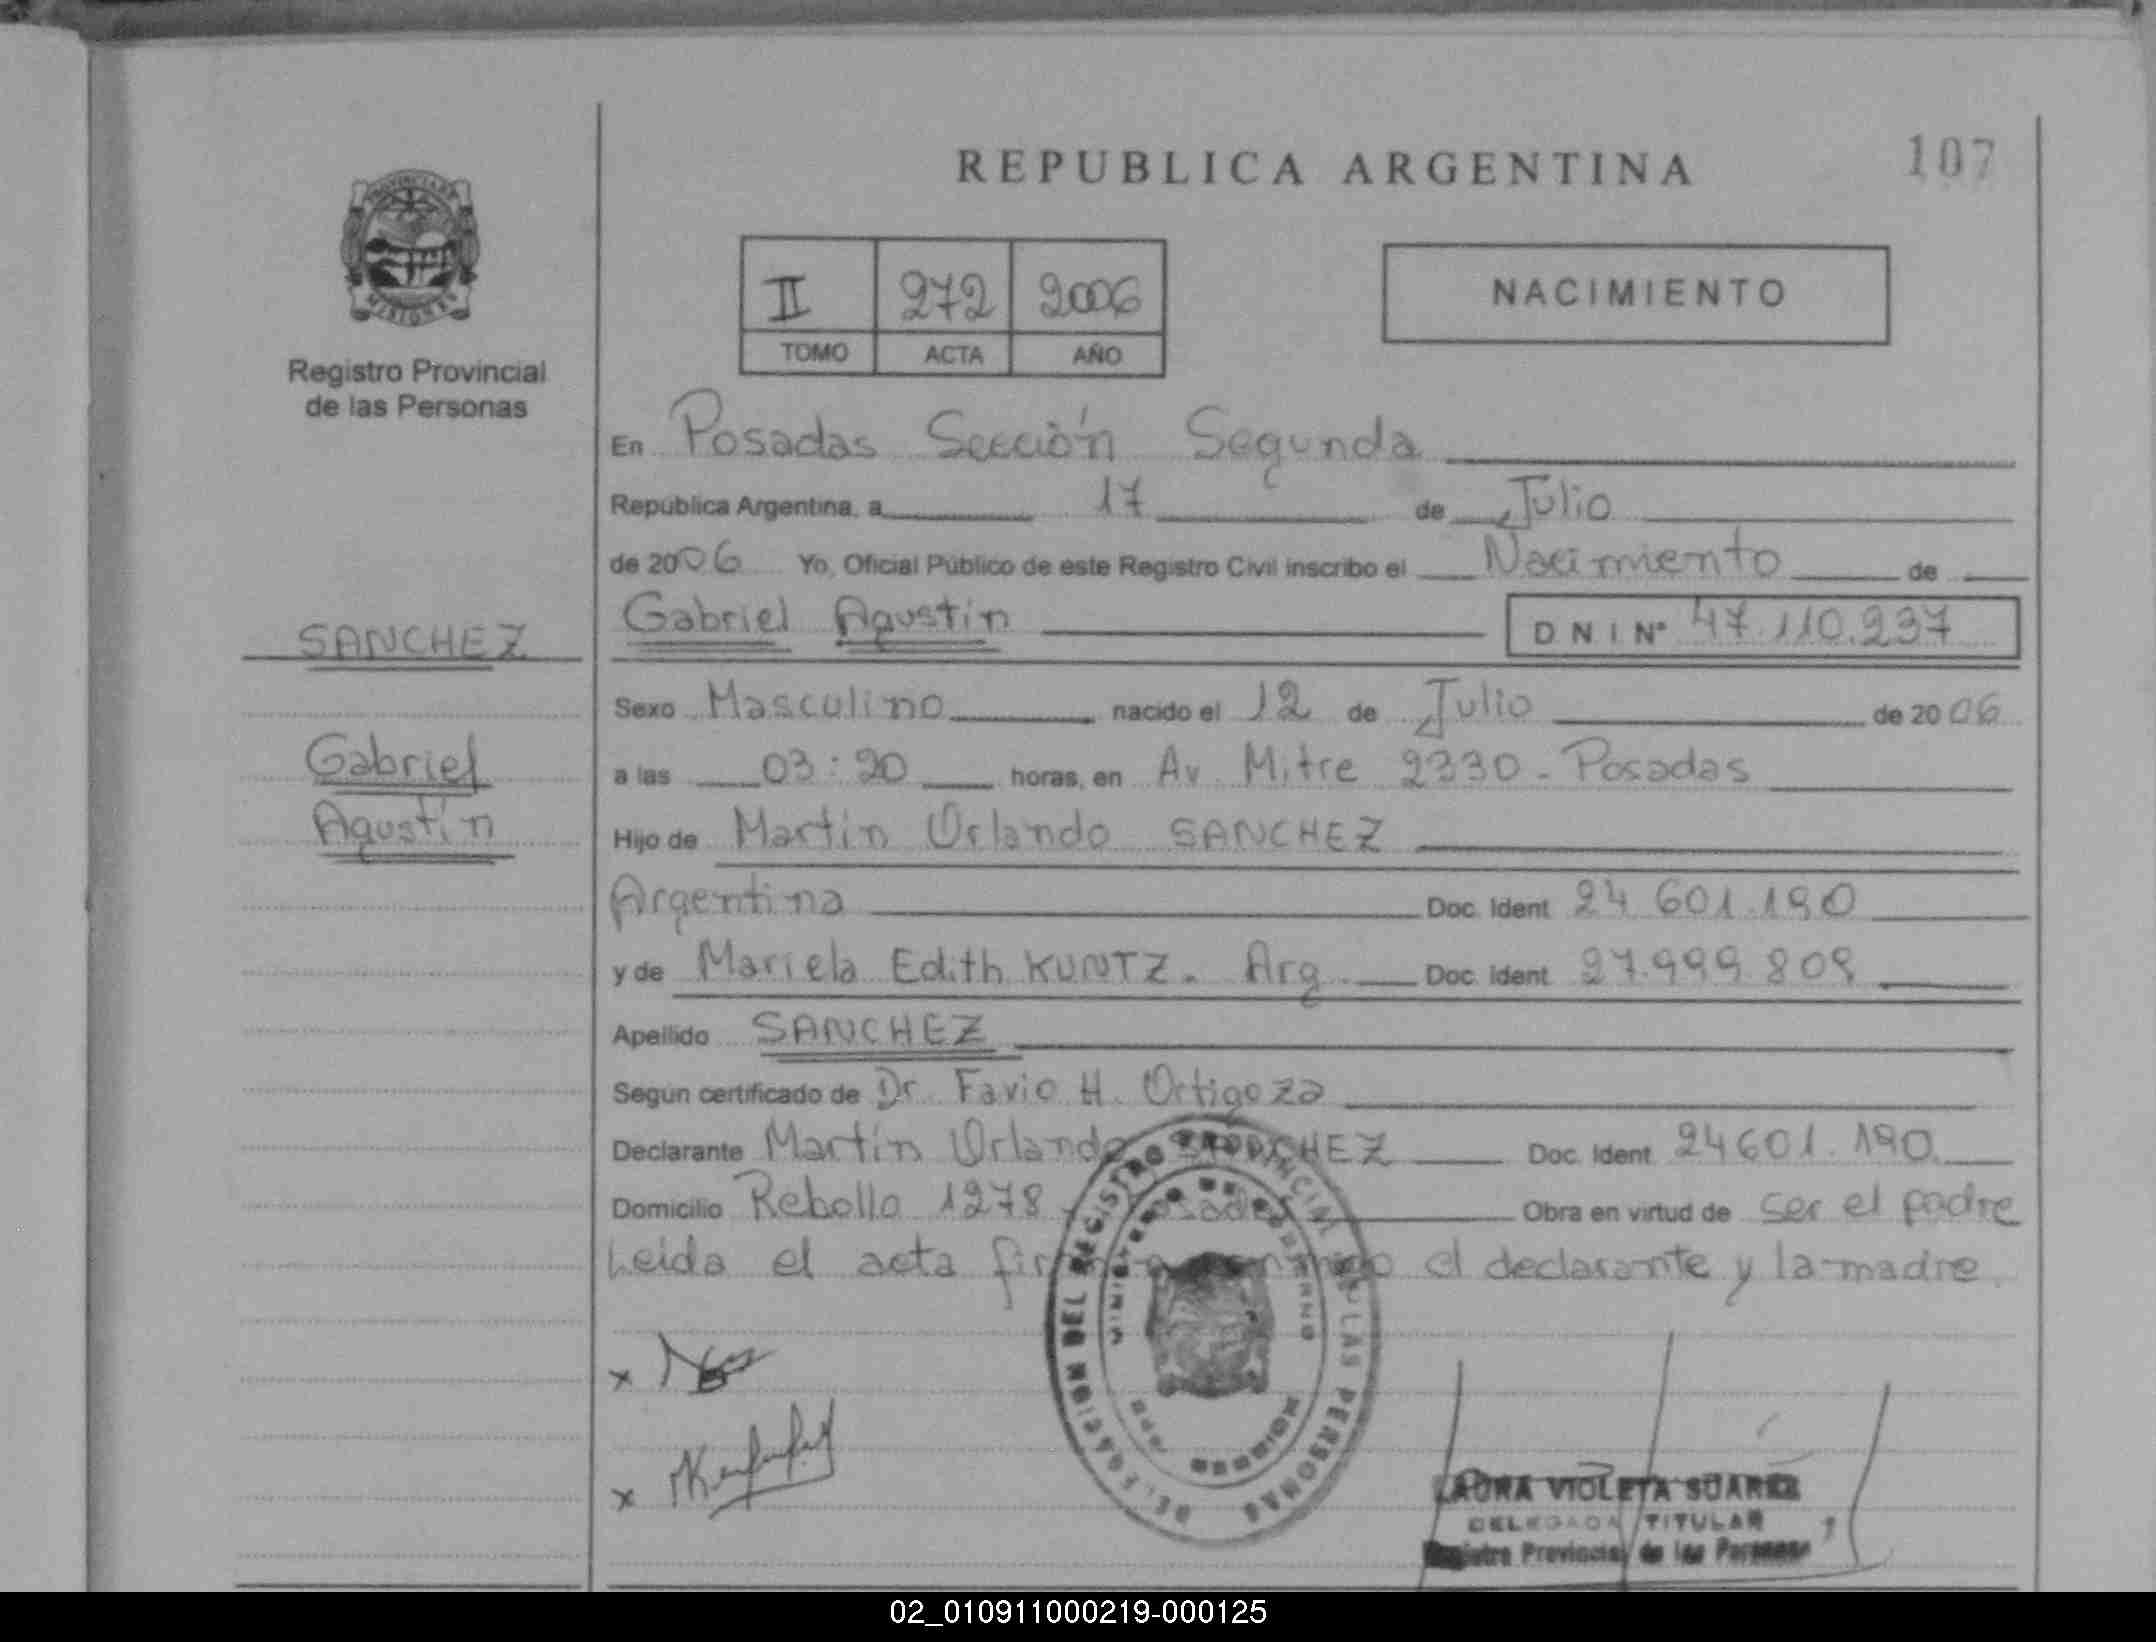 REPUBLICA ARGENTINA
107
PROVINCIA DE
MISIONES
Registro Provincial
de las Personas
II 272 2006
TOMO ACTA AÑO
NACIMIENTO
En Posadas Sección Segunda
República Argentina, a 17 de Julio
de 2006 Yo, Oficial Público de este Registro Civil inscribo el Nacimiento de
SANCHEZ
Gabriel Agustín
Gabriel Agustin D N I Nº 47.110.237
Sexo Masculino nacido el 12 de Julio de 2006
a las 03:20 horas, en Av. Mitre 2330 - Posadas
Hijo de Martin Orlando SANCHEZ
Argentina Doc. Ident 24 601.190
y de Mariela Edith KUNTZ. Arg Doc. Ident 27.999 809
Apellido SANCHEZ
Según certificado de Dr. Favio H. Ortigoza
Declarante Martín Orlando SANCHEZ Doc. Ident 24601.190
Domicilio Rebollo 1278 Posadas Obra en virtud de ser el padre
Leida el acta el declarante y la madre
DELEGACION DEL REGISTRO PROVINCIAL DE LAS PERSONAS
MINISTERIO DE GOBIERNO
MISIONES
LAURA VIOLETA SUAREZ
DELEGADA TITULAR
Registro Provincial de las Personas
02_010911000219-000125